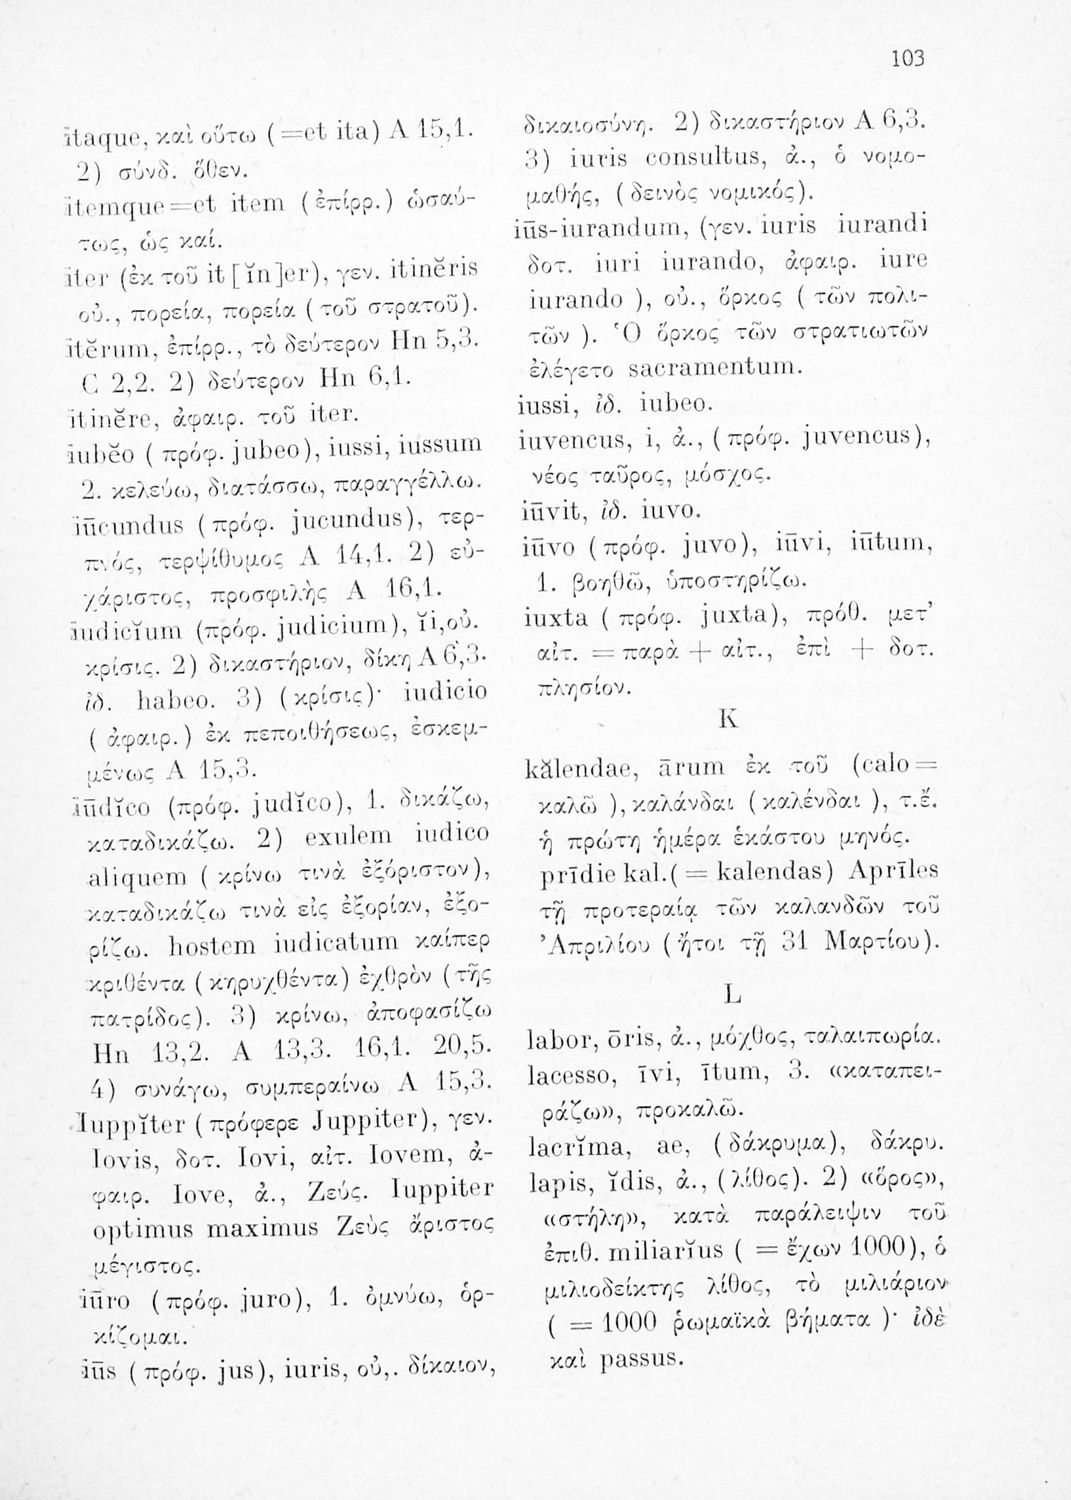 103
ĭtaque, καὶ οὕτω (=et ita) A 15,1.
2) σύνδ. ὅθεν.
itemque=et item (ἐπίρρ.) ὡσαύ-
τως, ὡς καί.
iter (ἐκ τοῦ it[ĭn]er), γεν. itinĕris
οὐ., πορεία, πορεία (τοῦ στρατοῦ).
itĕrum, ἐπίρρ., τὸ δεύτερον Hn 5,3.
C 2,2. 2) δεύτερον Hn 6,1.
itinĕre, ἀφαιρ. τοῦ iter.
iubĕo (πρόφ. jubeo), iussi, iussum
2. κελεύω, διατάσσω, παραγγέλλω.
iūcundus (πρόφ. jucundus), τερ-
πνός, τερψίθυμος A 14,1. 2) εὐ-
χάριστος, προσφιλὴς A 16,1.
iudicĭum (πρόφ. judicium), ĭi,οὐ.
κρίσις. 2) δικαστήριον, δίκη A 6,3.
ἰδ. habeo. 3) (κρίσις)· iudicio
(ἀφαιρ.) ἐκ πεποιθήσεως, ἐσκεμ-
μένως A 15,3.
iūdĭco (πρόφ. judĭco), 1. δικάζω,
καταδικάζω. 2) exulem iudico
aliquem (κρίνω τινὰ ἐξόριστον),
καταδικάζω τινὰ εἰς ἐξορίαν, ἐξο-
ρίζω. hostem iudicatum καίπερ
κριθέντα (κηρυχθέντα) ἐχθρὸν (τῆς
πατρίδος). 3) κρίνω, ἀποφασίζω
Hn 13,2. A 13,3. 16,1. 20,5.
4) συνάγω, συμπεραίνω A 15,3.
Iuppĭter (πρόφερε Juppiter), γεν.
Iovis, δοτ. Iovi, αἰτ. Iovem, ἀ-
φαιρ. Iove, ἀ., Ζεύς. Iuppiter
optimus maximus Ζεὺς ἄριστος
μέγιστος.
iūro (πρόφ. juro), 1. ὀμνύω, ὁρ-
κίζομαι.
iūs (πρόφ. jus), iuris, οὐ,. δίκαιον,
δικαιοσύνη. 2) δικαστήριον A 6,3.
3) iuris consultus, ἀ., ὁ νομο-
μαθής, (δεινὸς νομικός).
iūs-iurandum, (γεν. iuris iurandi
δοτ. iuri iurando, ἀφαιρ. iure
iurando), οὐ., ὅρκος (τῶν πολι-
τῶν). Ὁ ὅρκος τῶν στρατιωτῶν
ἐλέγετο sacramentum.
iussi, ἰδ. iubeo.
iuvencus, i, ἀ., (πρόφ. juvencus),
νέος ταῦρος, μόσχος.
iūvit, ἰδ. iuvo.
iūvo (πρόφ. juvo), iūvi, iūtum,
1. βοηθῶ, ὑποστηρίζω.
iuxta (πρόφ. juxta), πρόθ. μετ'
αἰτ. = παρὰ + αἰτ., ἐπὶ + δοτ.
πλησίον.
K
kălendae, ārum ἐκ τοῦ (calo=
καλῶ), καλάνδαι (καλένδαι), τ.ἔ.
ἡ πρώτη ἡμέρα ἑκάστου μηνός.
prīdie kal.(= kalendas) Aprīles
τῇ προτεραίᾳ τῶν καλανδῶν τοῦ
Ἀπριλίου (ἤτοι τῇ 31 Μαρτίου).
L
labor, ōris, ἀ., μόχθος, ταλαιπωρία.
lacesso, īvi, ītum, 3. «καταπει-
ράζω», προκαλῶ.
lacrĭma, ae, (δάκρυμα), δάκρυ.
lapis, ĭdis, ἀ., (λίθος). 2) «ὅρος»,
«στήλη», κατὰ παράλειψιν τοῦ
ἐπιθ. miliarĭus (= ἔχων 1000), ὁ
μιλιοδείκτης λίθος, τὸ μιλιάριον
(= 1000 ῥωμαϊκὰ βήματα)· ἰδὲ
καὶ passus.